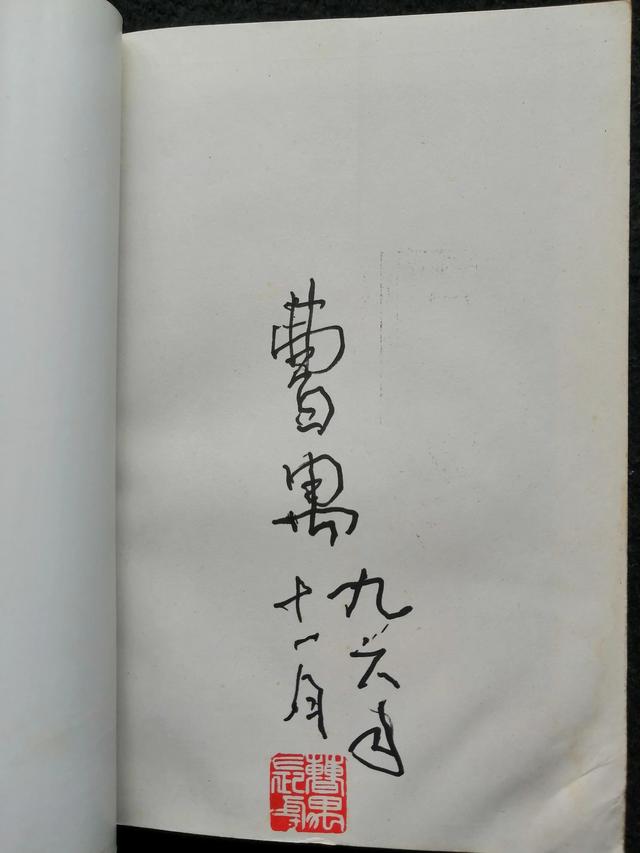 曹禺
九六年
十一月
曹禺